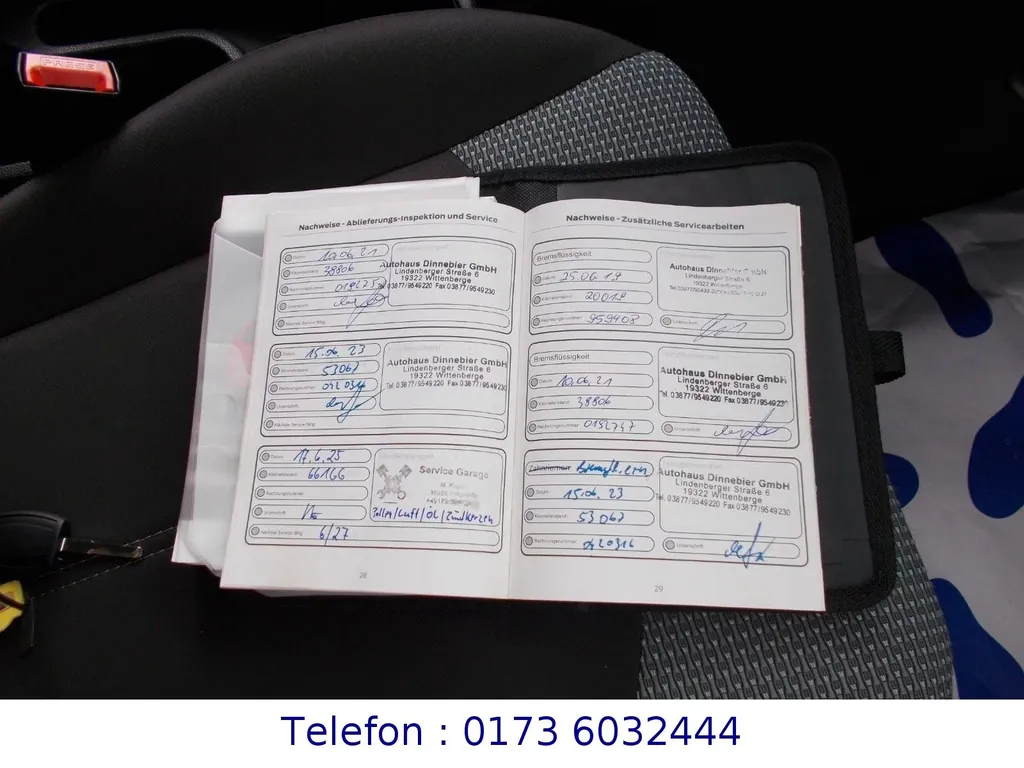 PRESS
Nachweise - Ablieferungs-Inspektion und Service
Datum 10.06.21
Kilometerstand 38806
Rechnungsnummer
Unterschrift
Nächster Service fällig
Autohaus Dinnebier GmbH
Lindenberger Straße 6
19322 Wittenberge
Tel. 03877/9549220 Fax 03877/9549230
Datum 15.06.23
Kilometerstand 53067
Rechnungsnummer
Unterschrift
Nächster Service fällig
Autohaus Dinnebier GmbH
Lindenberger Straße 6
19322 Wittenberge
Tel. 03877/9549220 Fax 03877/9549230
Datum 17.6.25
Kilometerstand 66166
Rechnungsnummer
Unterschrift
Nächster Service fällig 6/27
Service Garage
Pollen/Luft/Öl/Zündkerzen
28
Nachweise - Zusätzliche Servicearbeiten
Bremsflüssigkeit
Datum 25.06.19
Kilometerstand 20019
Rechnungsnummer 959408
Unterschrift
Autohaus Dinnebier GmbH
Lindenberger Straße 6
19322 Wittenberge
Bremsflüssigkeit
Datum 10.06.21
Kilometerstand 38806
Rechnungsnummer
Unterschrift
Autohaus Dinnebier GmbH
Lindenberger Straße 6
19322 Wittenberge
Tel. 03877/9549220 Fax 03877/9549230
Zahnriemen
Datum 15.06.23
Kilometerstand 53067
Rechnungsnummer 0420316
Unterschrift
Autohaus Dinnebier GmbH
Lindenberger Straße 6
19322 Wittenberge
Tel. 03877/9549220 Fax 03877/9549230
29
Telefon : 0173 6032444